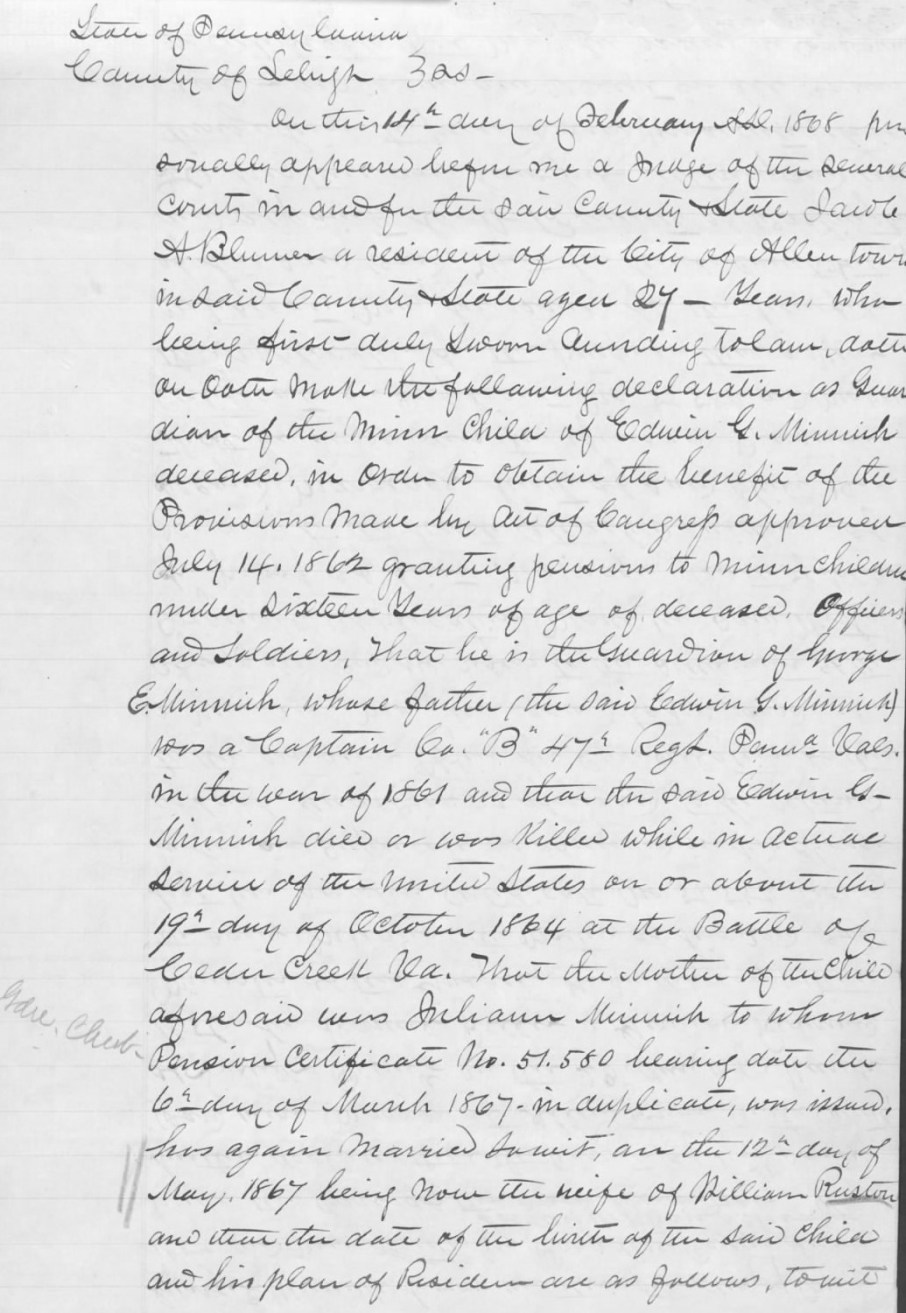 State of Pennsylvania
County of Lehigh } ss-
On this 14th day of February A.D. 1868 per
sonally appeared before me a Judge of the several
Courts in and for the said County & State Jacob
A. Blumer a resident of the City of Allen town
in said County & State aged 27 - Years, who
being first duly Sworn according to law, doth
on Oath make the following declaration as Guar
dian of the Minor Child of Edwin G. Minnich
deceased, in Order to obtain the benefit of the
Provisions made by Act of Congress approved
July 14. 1862 granting pensions to minor children
under sixteen Years of age of deceased. Officers
and Soldiers, That he is the Guardian of George
E. Minnich, whose father (the said Edwin G. Minnich)
was a Captain Co. "B" 47th Regt. Penna Vols.
in the war of 1861 and that the said Edwin G-
Minnich died or was Killed while in actual
service of the United States on or about the
19th day of October 1864 at the Battle of
Cedar Creek Va. That the Mother of the Child
aforesaid was Juliann Minnich to whom
Pension Certificate No. 51.580 bearing date the
6th day of March 1867- in duplicate, was issued.
has again Married towit, on the 12th day of
May, 1867 being now the wife of William Ruston
and that the date of the birth of the said Child
and his place of Residence are as follows, to wit